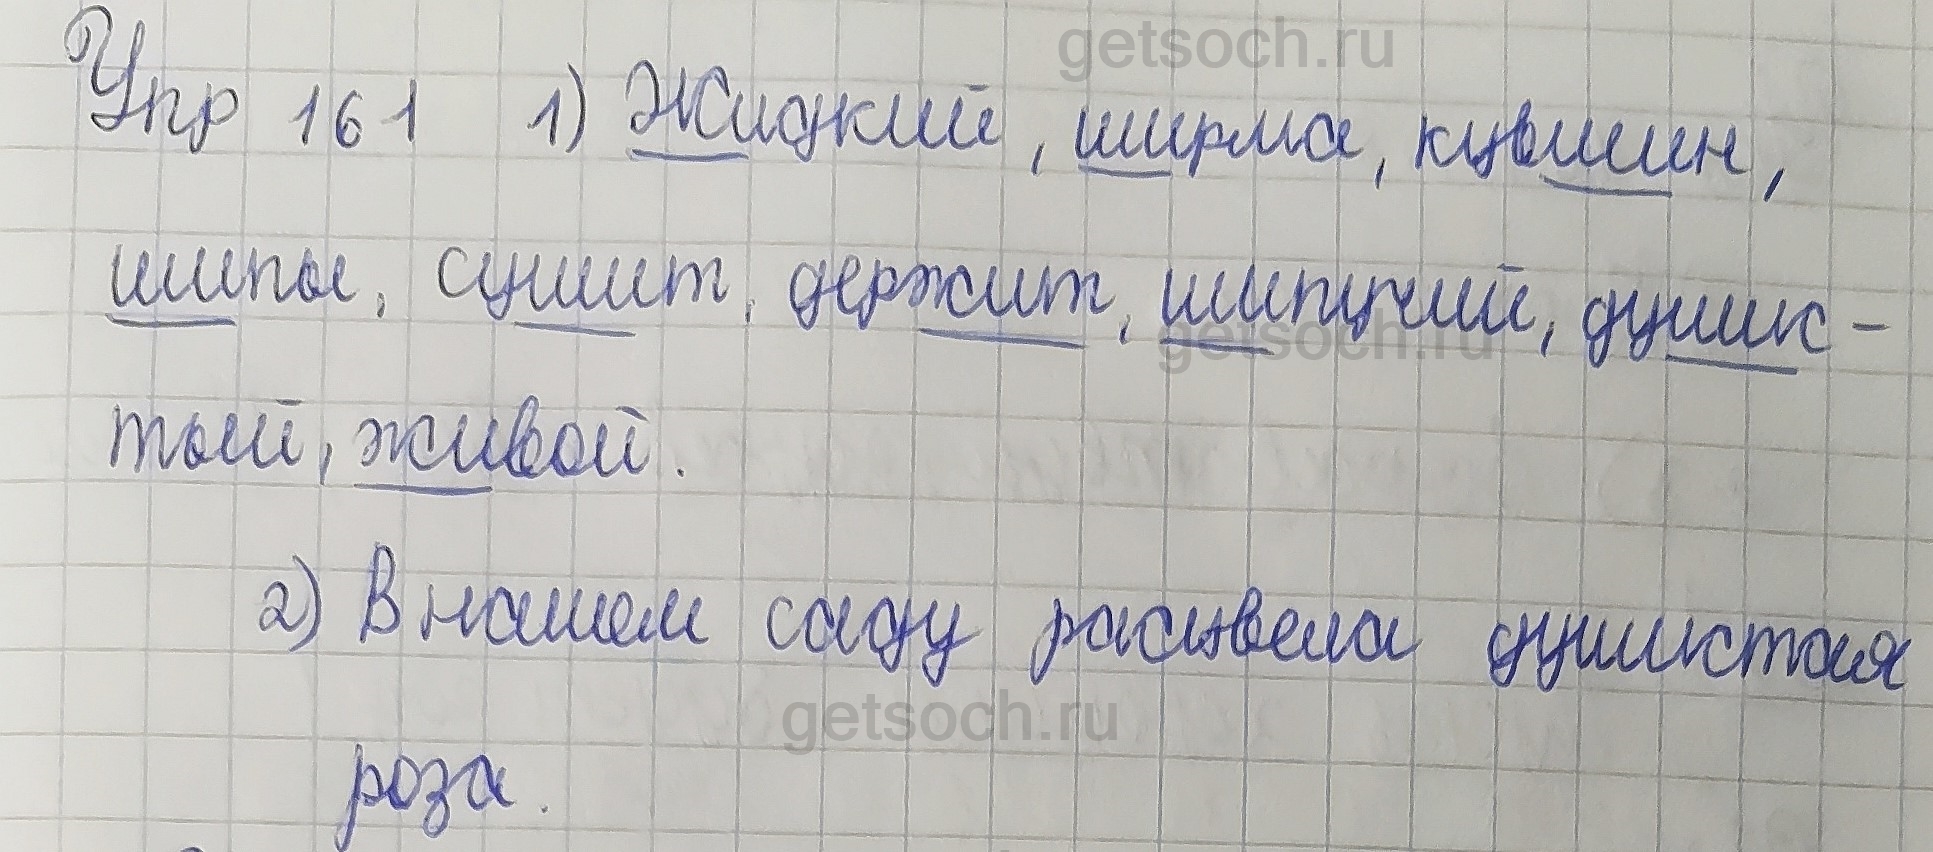 getsoch.ru
Упр 161 1) Жидкий, ширма, кувшин,
шипы, сушит, держит, шипучий, душис-
getsoch.ru
тый, живой.
2) В нашем саду расцвела душистая
getsoch.ru
роза.